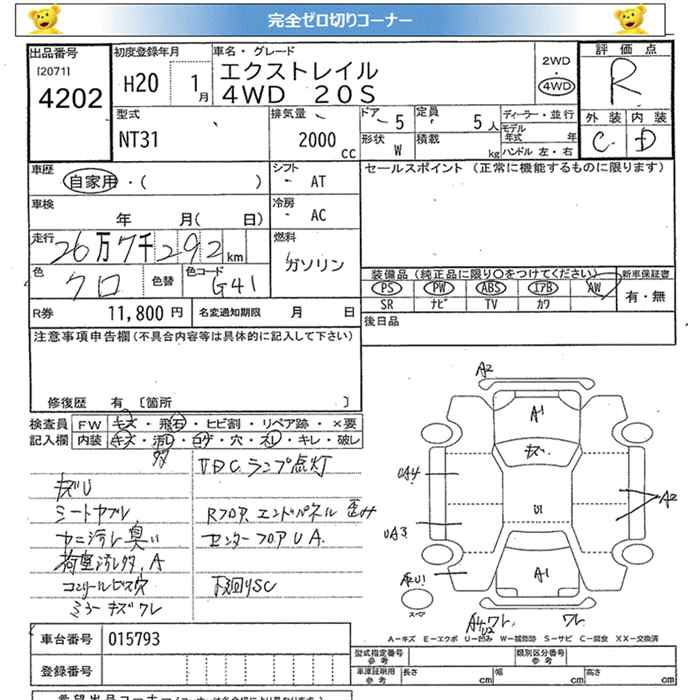 完全ゼロ切りコーナー
出品番号
[2071]
4202
初度登録年月
H20 1月
車名・グレード
エクストレイル
4WD 20S
2WD
・
4WD
評価点
R
外装 内装
C D
型式
NT31
排気量
2000 cc
ドア 5
定員 5人
形状 W
積載 kg
ディーラー・並行
モデル年式 年
ハンドル 左・右
車歴
自家用・( )
シフト
AT
セールスポイント (正常に機能するものに限ります)
車検
年 月( 日)
冷房
AC
走行
26万7千292km
燃料
ガソリン
色
クロ
色替
色コード
G41
装備品(純正品に限り〇をつけてください)
新車保証書
PS PW ABS エアB AW
有・無
SR ナビ TV カワ
R券 11,800円
名変通知期限 月 日
後日品
注意事項申告欄(不具合内容等は具体的に記入して下さい)
修復歴 有 [箇所 ]
検査員
記入欄
FW キズ・飛石・ヒビ割・リペア跡・×要
内装 キズ・汚レ・コゲ・穴・スレ・キレ・破レ
VDCランプ点灯
キズU
シートヤブレ
Rフロア エンドパネル 歪み
ヤニ汚レ臭い
センターフロアUA.
荷室汚レ.A
コンソールビス穴
下廻りSC
ミラーキズワレ
A2
A1
キズ
UA4
A2
U1
UA3
A2U1
A1
スペア
A4ワレ
U2
ワレ
A-キズ E-エクボ U-凹み W-補修跡 S-サビ C-腐食 XX-交換済
車台番号 015793
登録番号
型式指定番号
参考
類別区分番号
参考
車庫証明用
参考
長さ cm 幅 cm 高さ cm
希望出品コーナー